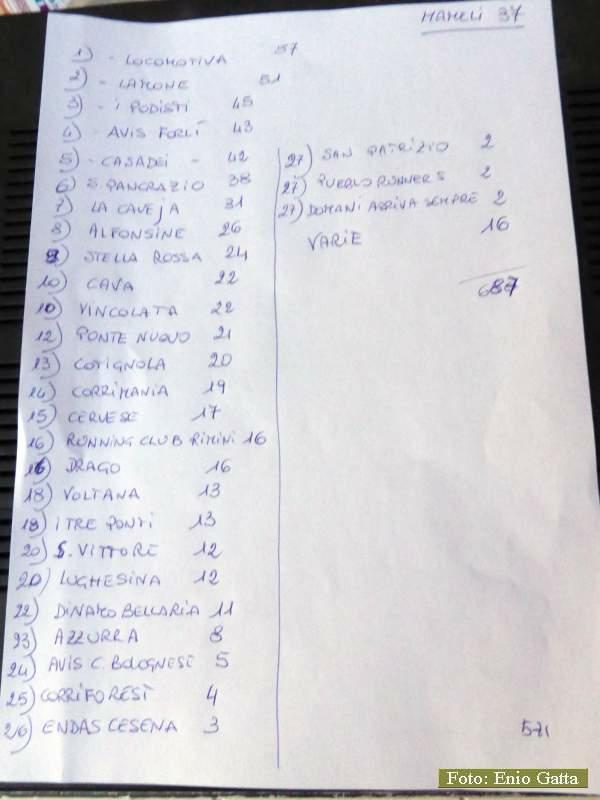 MAMELI 37
1) - LOCOMOTIVA 57
2) - LAMONE 51
3) - I PODISTI 45
4) - AVIS FORLÌ 43
5) - CASADEI - 42
6) S. PANCRAZIO 38
7) LA CAVEJA 31
8) ALFONSINE 26
9) STELLA ROSSA 24
10) CAVA 22
10) VINCOLATA 22
12) PONTE NUOVO 21
13) COTIGNOLA 20
14) CORRIMANIA 19
15) CERVESE 17
16) RUNNING CLUB RIMINI 16
16) DRAGO 16
18) VOLTANA 13
18) I TRE PONTI 13
20) S. VITTORE 12
20) LUGHESINA 12
22) DINAMO BELLARIA 11
23) AZZURRA 8
24) AVIS C. BOLOGNESE 5
25) CORRIFOREST 4
26) ENDAS CESENA 3
27) SAN PATRIZIO 2
27) PUEBLO RUNNERS 2
27) DOMANI ARRIVA SEMPRE 2
VARIE 16
687
571
Foto: Enio Gatta